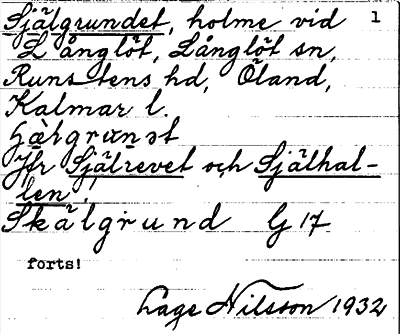 Själgrundet, holme vid 1
Långlöt, Långlöt sn,
Runstens hd, Öland,
Kalmar l.
Jfr Själrevet och Själhal-
len!
Skälgrund G 17
forts!
Lage Nilsson 1932